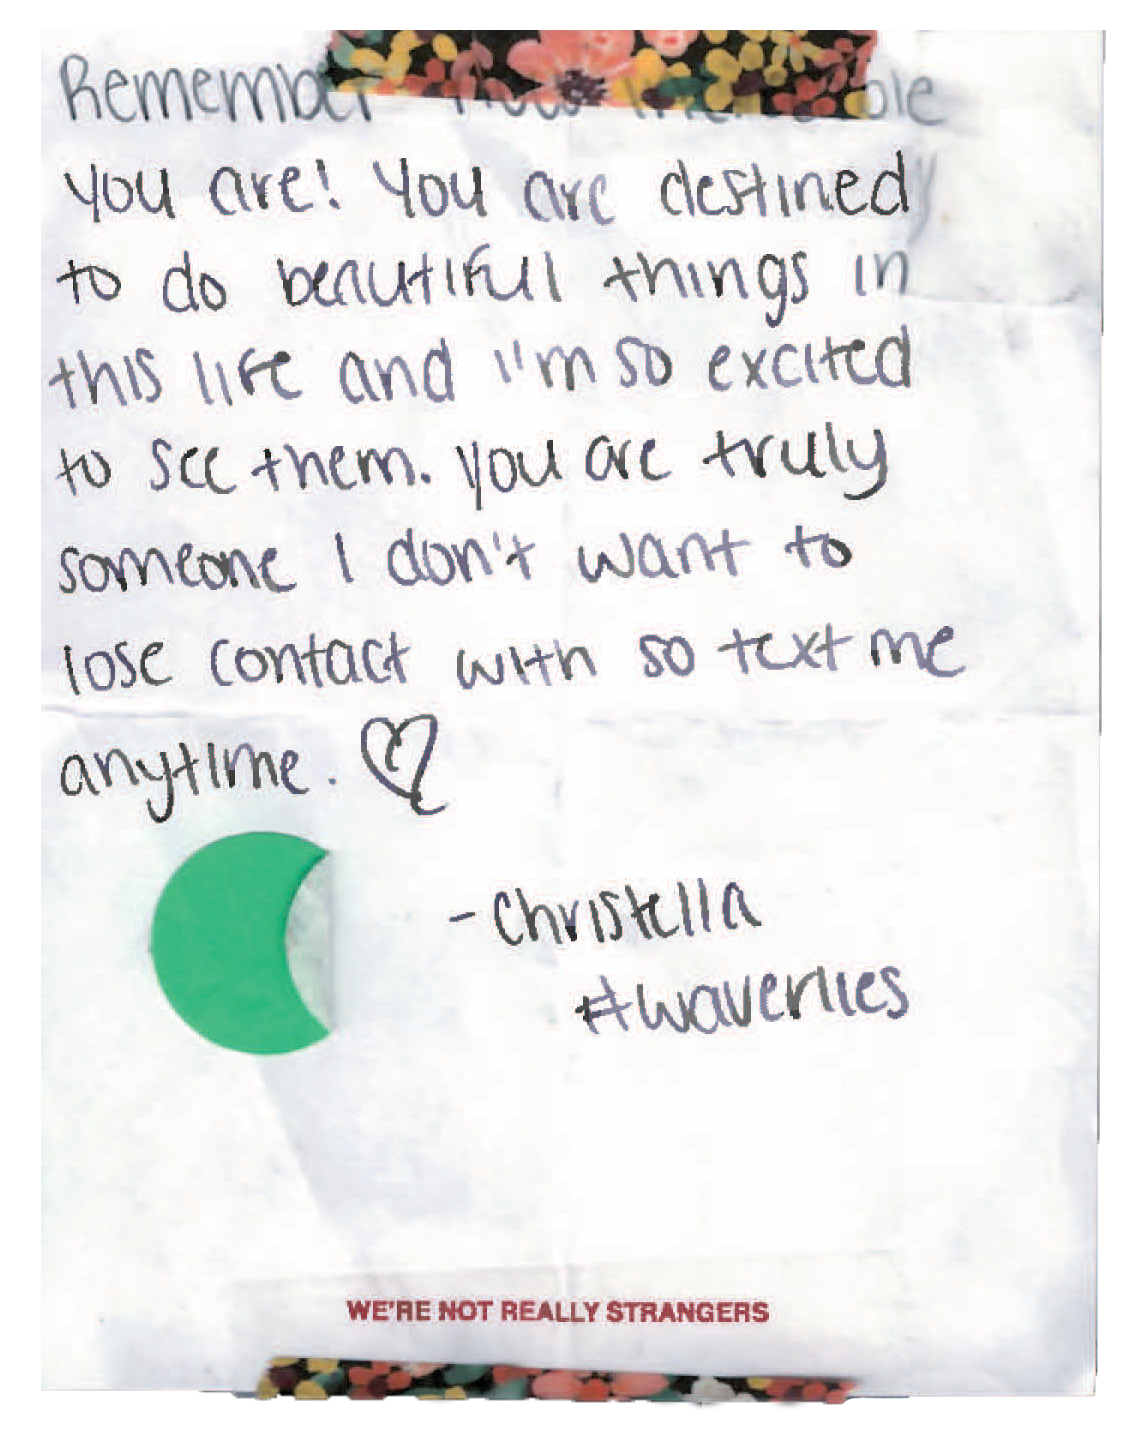 Remember how
you are! You are destined
to do beautiful things in
this life and I'm so excited
to see them. you are truly
someone I don't want to
lose contact with so text me
anytime.
-Christella
#waverlies
WE'RE NOT REALLY STRANGERS